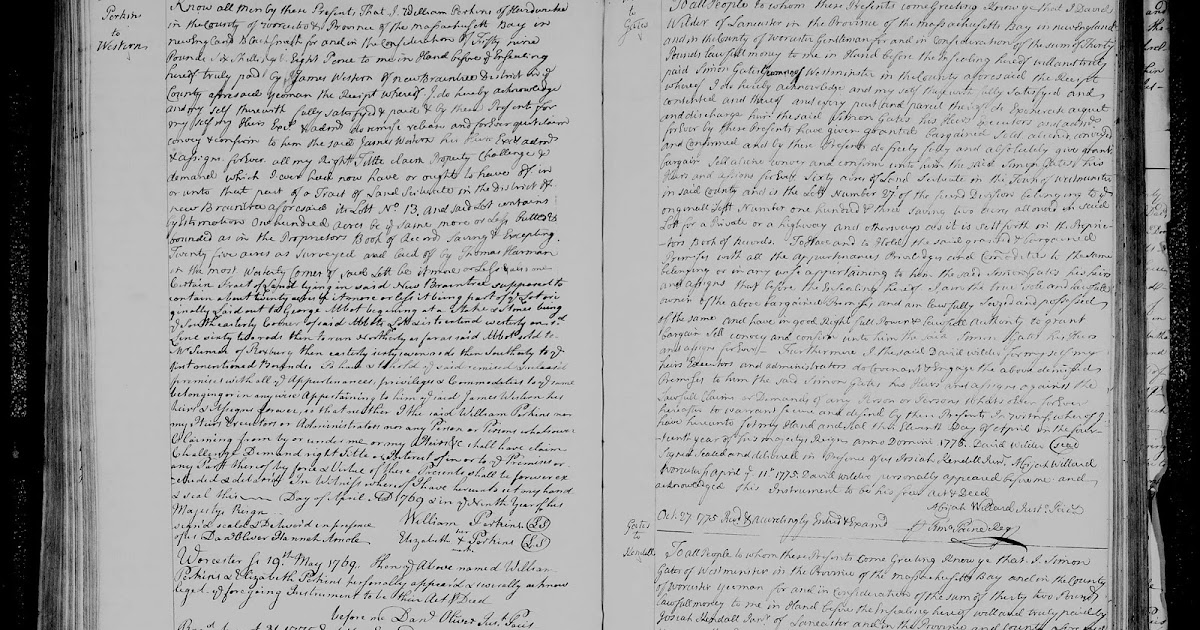 Perkins
to
Western
Know all men by these Presents, That I William Perkins of Hardwick
in the County of Worcester & Province of the Massachusetts Bay in
New England Blacksmith for and in the Consideration of Fifty nine
Pounds Six Shillings & Eight Pence to me in Hand before y Ensealing
hereof truly paid by James Western of New Braintree District in y
County aforesaid yeoman the Receipt whereof I do hereby acknowledge
and my self therewith fully satisfyed & paid & by these Presents for
my self my Heirs Exrs & admrs do remise release and forEver quit claim
convey & confirm to him the said James Western his Heirs Exrs admrs
& assigns forEver all my Right Title claim Property Challenge &
demand which I ever had now have or ought to have of in
or unto that part of a Tract of Land Situate in the District of
New Braintree aforesaid its Lott No 13. And said Lott contains
by Estimation One hundred acres be y Same more or Less Butted &
bounded as in the Proprietors Book of Record Saving & Excepting
Twenty five acres as Surveyed and laid of by Thomas Harman
in the most Westerly Corner of said Lott be it more or Less
Certain Tract of Land lying in said New Braintree supposed to
contain about twenty acres be it more or less it being part of y Lot ori
ginally Laid out to George Abbot begining at a Stake & Stones being
y Southeasterly Corner of said Abbots Lott & is to extend westerly on
Line sixty two rods then to run Northerly as far as said Abbot sold to
Mr Sumner of Roxbury then easterly sixty seven rods then Southerly to y
first mentioned Bounds. To have & to hold y said remised released
premises with all y Appurtenances, privileges & Commodities to y same
belonging or in any wise Appertaining to him y said James Western his
heirs & Assigns forever, so that neither I the said William Perkins nor
my Heirs Executors or Administrators nor any Person or Persons whatsoever
Claiming from by or under me or my Heirs &c shall have claim
Challenge Demand right Title or Interest of in or to y Premises or
any Part thereof by force & Virtue of these Presents shall be forever ex
cluded & debarred In Witness whereof I have hereunto set my hand
& seal this Day of April AD 1769 & in y Ninth Year of his
Majestys Reign
signd seald & Delivered in presence
of us Danl Oliver Hannah Arnold
William Perkins (LS)
Elizabeth & Perkins (LS)
mark
Worcester ss 19th May 1769. Then y Above named William
Perkins & Elizabeth Perkins personally appeard & severally acknow
ledged y foregoing Instrument to be their Act & Deed
before me Danl Oliver Just Pacis
to
Gates
To all People to whom these Presents come Greeting Know ye that I David
Wilder of Lancaster in the Province of the Massachusetts Bay in New England
and in the County of Worcester Gentleman for and in Consideration of the sum of Thirty
Pounds lawfull money to me in Hand before the Ensealing hereof well and truly
paid Simon Gates yeoman of Westminster in the County aforesaid the Receipt
whereof I do hereby acknowledge and my self therewith fully satisfyed and
contented and thereof and every part and parcel thereof do Exonerate acquit
and discharge him the said Simon Gates his Heirs Executors and admrs
forEver by these Presents have given granted bargained Sold aliened conveyed
and Confirmed and by these Presents do freely fully and absolutely give grant
bargain Sell aliene convey and confirm unto him the said Simon Gates his
Heirs and assigns forEver Sixty acres of Land Situate in the Town of Westminster
in said County and is the Lott Number 27 of the second Division belonging to y
original Lott Number one hundred & three saving two acres allowed in said
Lott for a Private or a highway and otherways as it is sett forth in the Proprie-
tors Book of Records. To Have and to Hold the said granted & bargained
Premises with all the appurtenances Priviledges and Comodities to the same
belonging or in any wise appertaining to him the said Simon Gates his heirs
and assigns that before the Ensealing hereof I am the true sole and lawfull
owner of the above bargained Premises and am lawfully Seized and possessed
of the same and have in good Right full Power & lawfull Authority to grant
bargain sell convey and confirm unto him the said Simon Gates his heirs
and assigns forEver. Furthermore I the said David Wilder for my self my
heirs Executors and administrators do Covenant & Engage the above demised
Premises to him the said Simon Gates his Heirs and assigns against the
lawfull Claims or Demands of any Person or Persons Whatsoever forEver
hereafter to warrant secure and defend by these Presents In Witness whereof I
have hereunto set my Hand and Seal the Eleventh Day of April in the fifteenth
year of his majestys Reign anno Domini 1775. David Wilder (seal)
Signed Sealed and delivered in Presence of us Josiah Kendell Junr. Abijah Willard
Worcester ss April y 11th 1775 David Wilder personally appeared before me and
acknowledged this Instrument to be his free act & Deed
Abijah Willard Just. Pacis
Oct. 27 1775 Recd & accordingly Entered & Examd
Gates
to
Kendell
To all People to whom these Presents Come Greeting Know ye that I Simon
Gates of Westminster in the Province of the Massachusetts Bay and in the County
of Worcester yeoman for and in Consideration of the sum of thirty two Pounds
lawfull money to me in Hand before the Ensealing hereof well and truly paid by
Josiah Kendall Junr of Lancaster and in the Province and County aforesaid